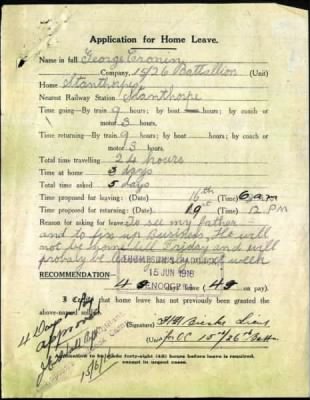 Application for Home Leave.
Name in full George Cronin
Company, 15/26 Battallion (Unit)
Home Stanthorpe
Nearest Railway Station Stanthorpe
Time going—By train 9 hours; by boat hours; by coach or
motor 3 hours.
Time returning—By train 9 hours; by boat hours; by coach or
motor 3 hours.
Total time travelling 24 hours
Time at home 3 days
Total time asked 5 days
Time proposed for leaving: (Date) 16th (Time) 6 am
Time proposed for returning: (Date) 19th (Time) 12 PM
Reason for asking for leave: To see my father
and to fix up business. He will
not be home till Friday and will
probly be week
RECOMMENDATION
15 JUN 1918
days leave (on pay).
I certify that home leave has not previously been granted the
above-named soldier.
4 Days
approved
(Signature)
for OC 15th/26th Battn
15/6/18
Application to be made forty-eight (48) hours before leave is required,
except in urgent cases.